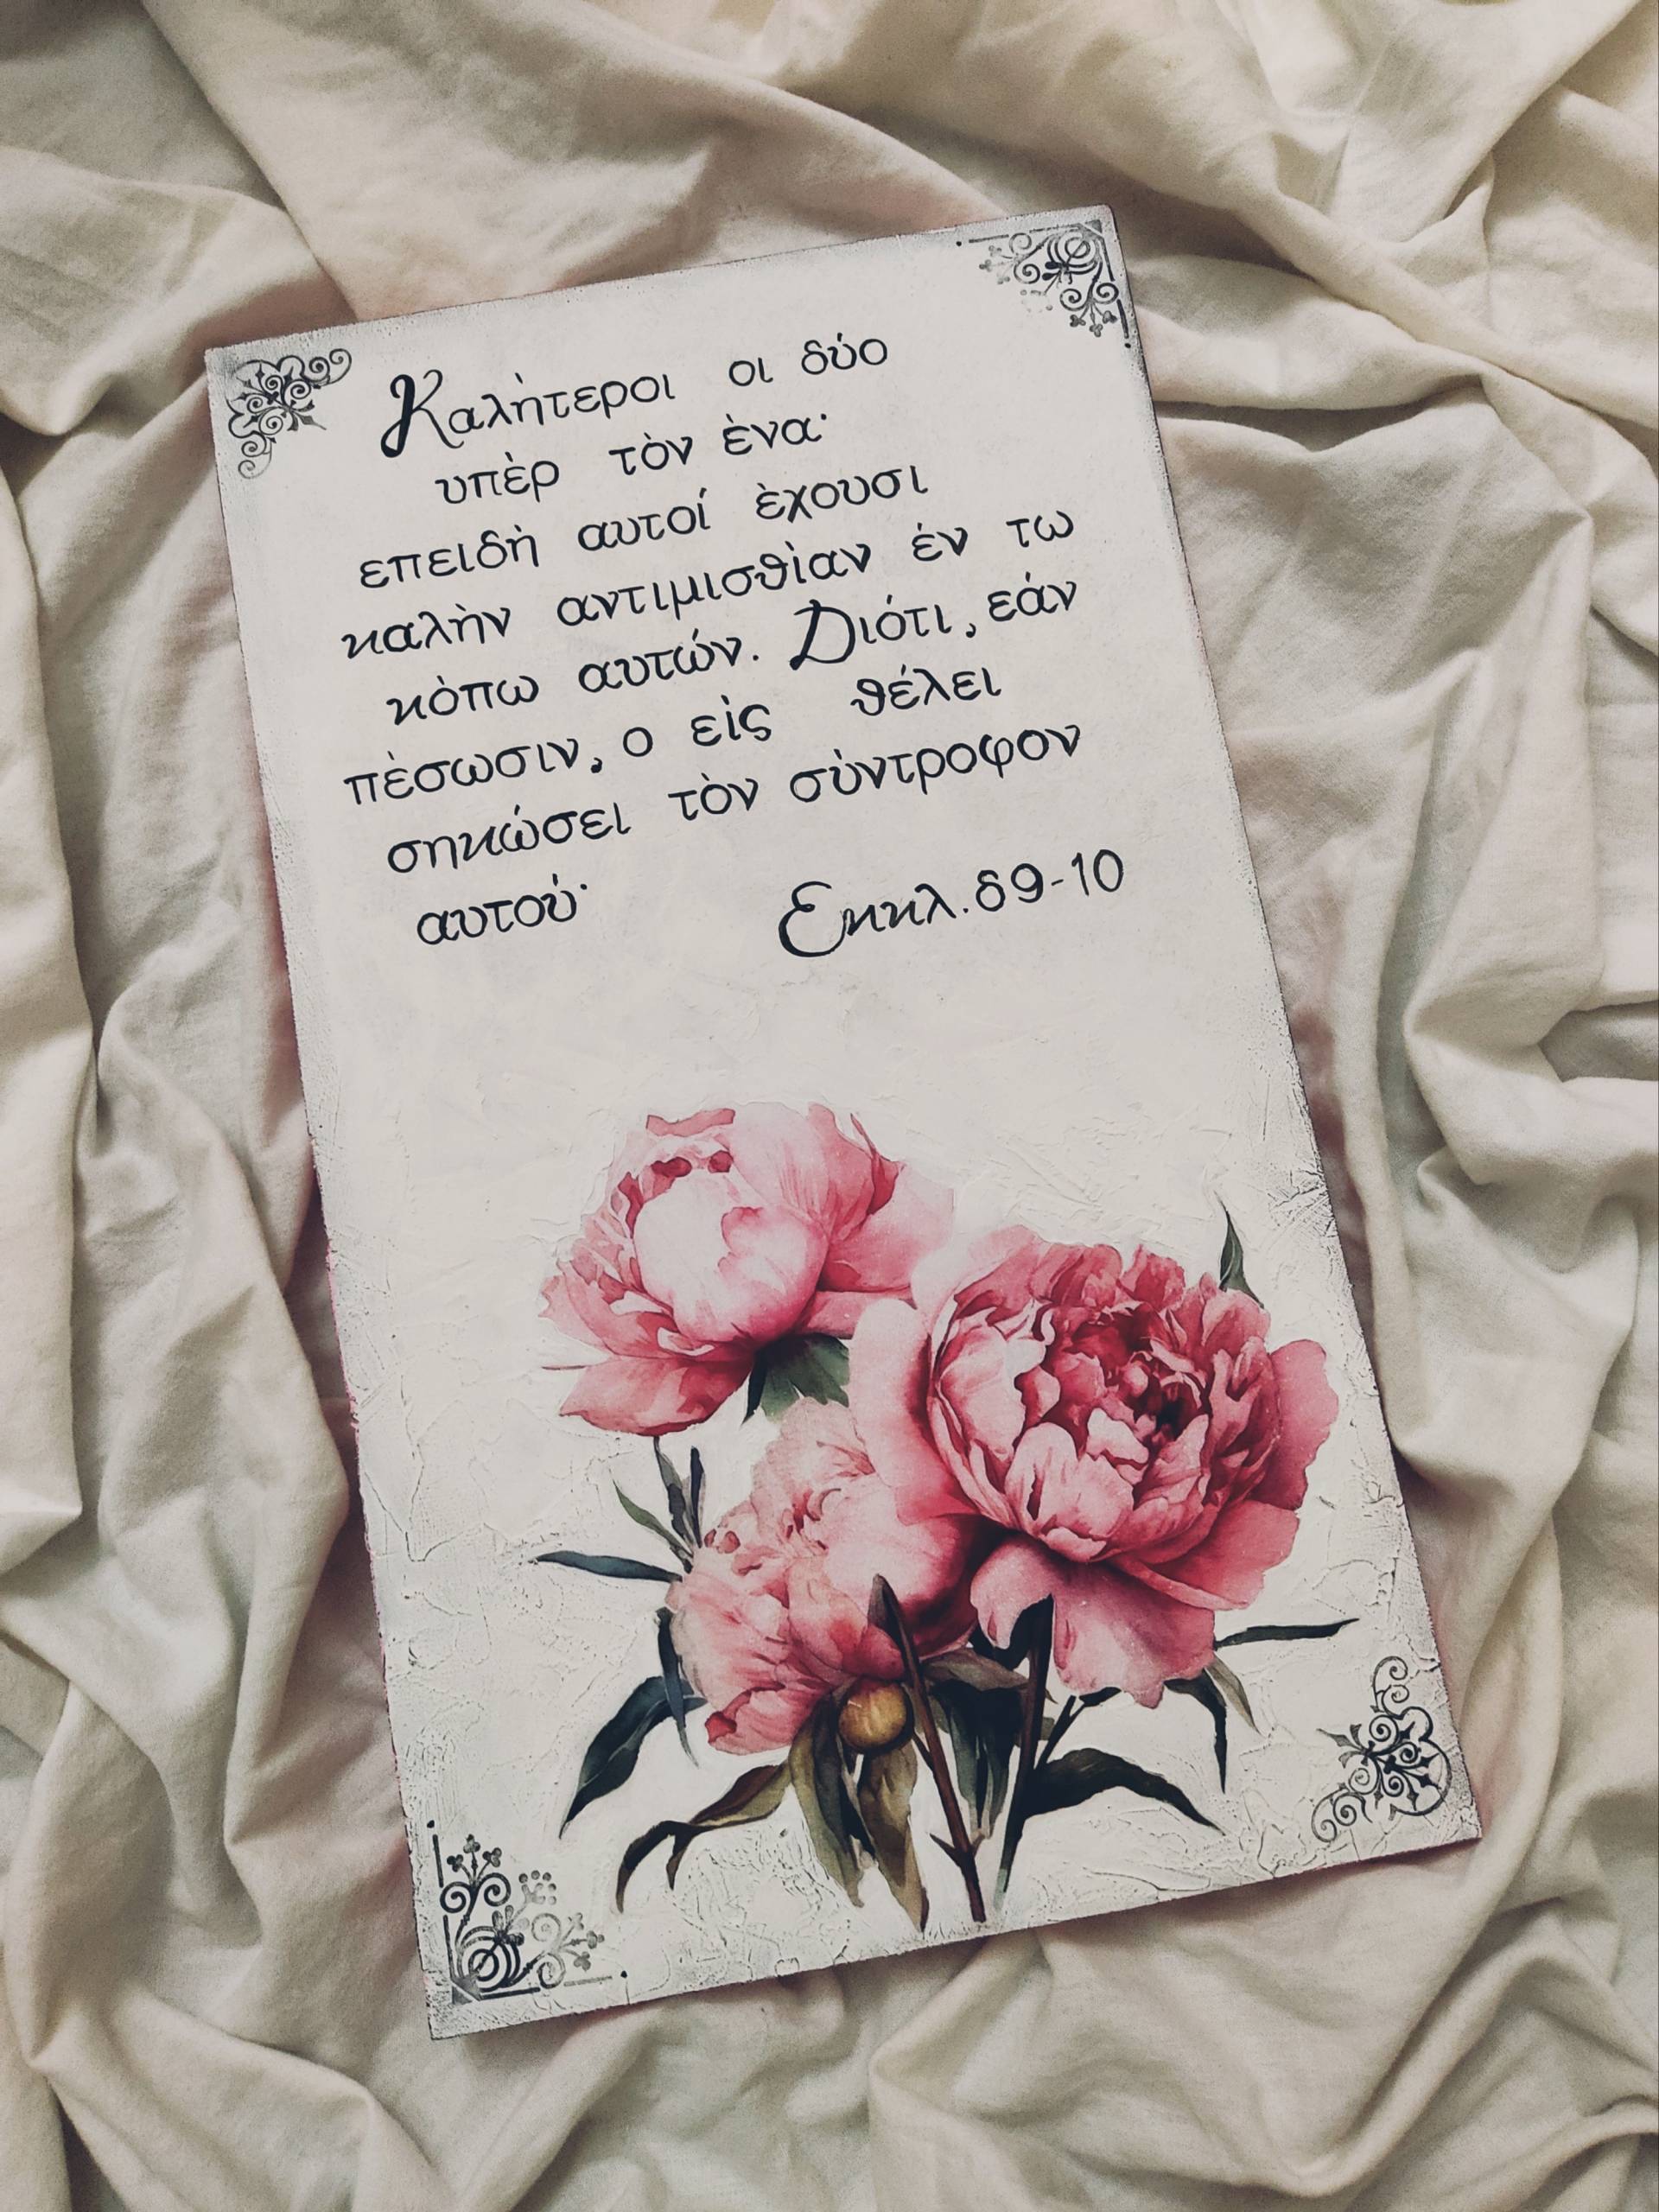 Καλὴτεροι οι δύο
υπὲρ τὸν ὲνα·
επειδὴ αυτοί ὲχουσι
καλὴν αντιμισθὶαν έν τω
κὸπω αυτών. Διότι, εάν
πὲσωσιν, ο εὶς θέλει
σηκώσει τὸν σὺντροφον
αυτού·
Εκκλ. δ 9-10